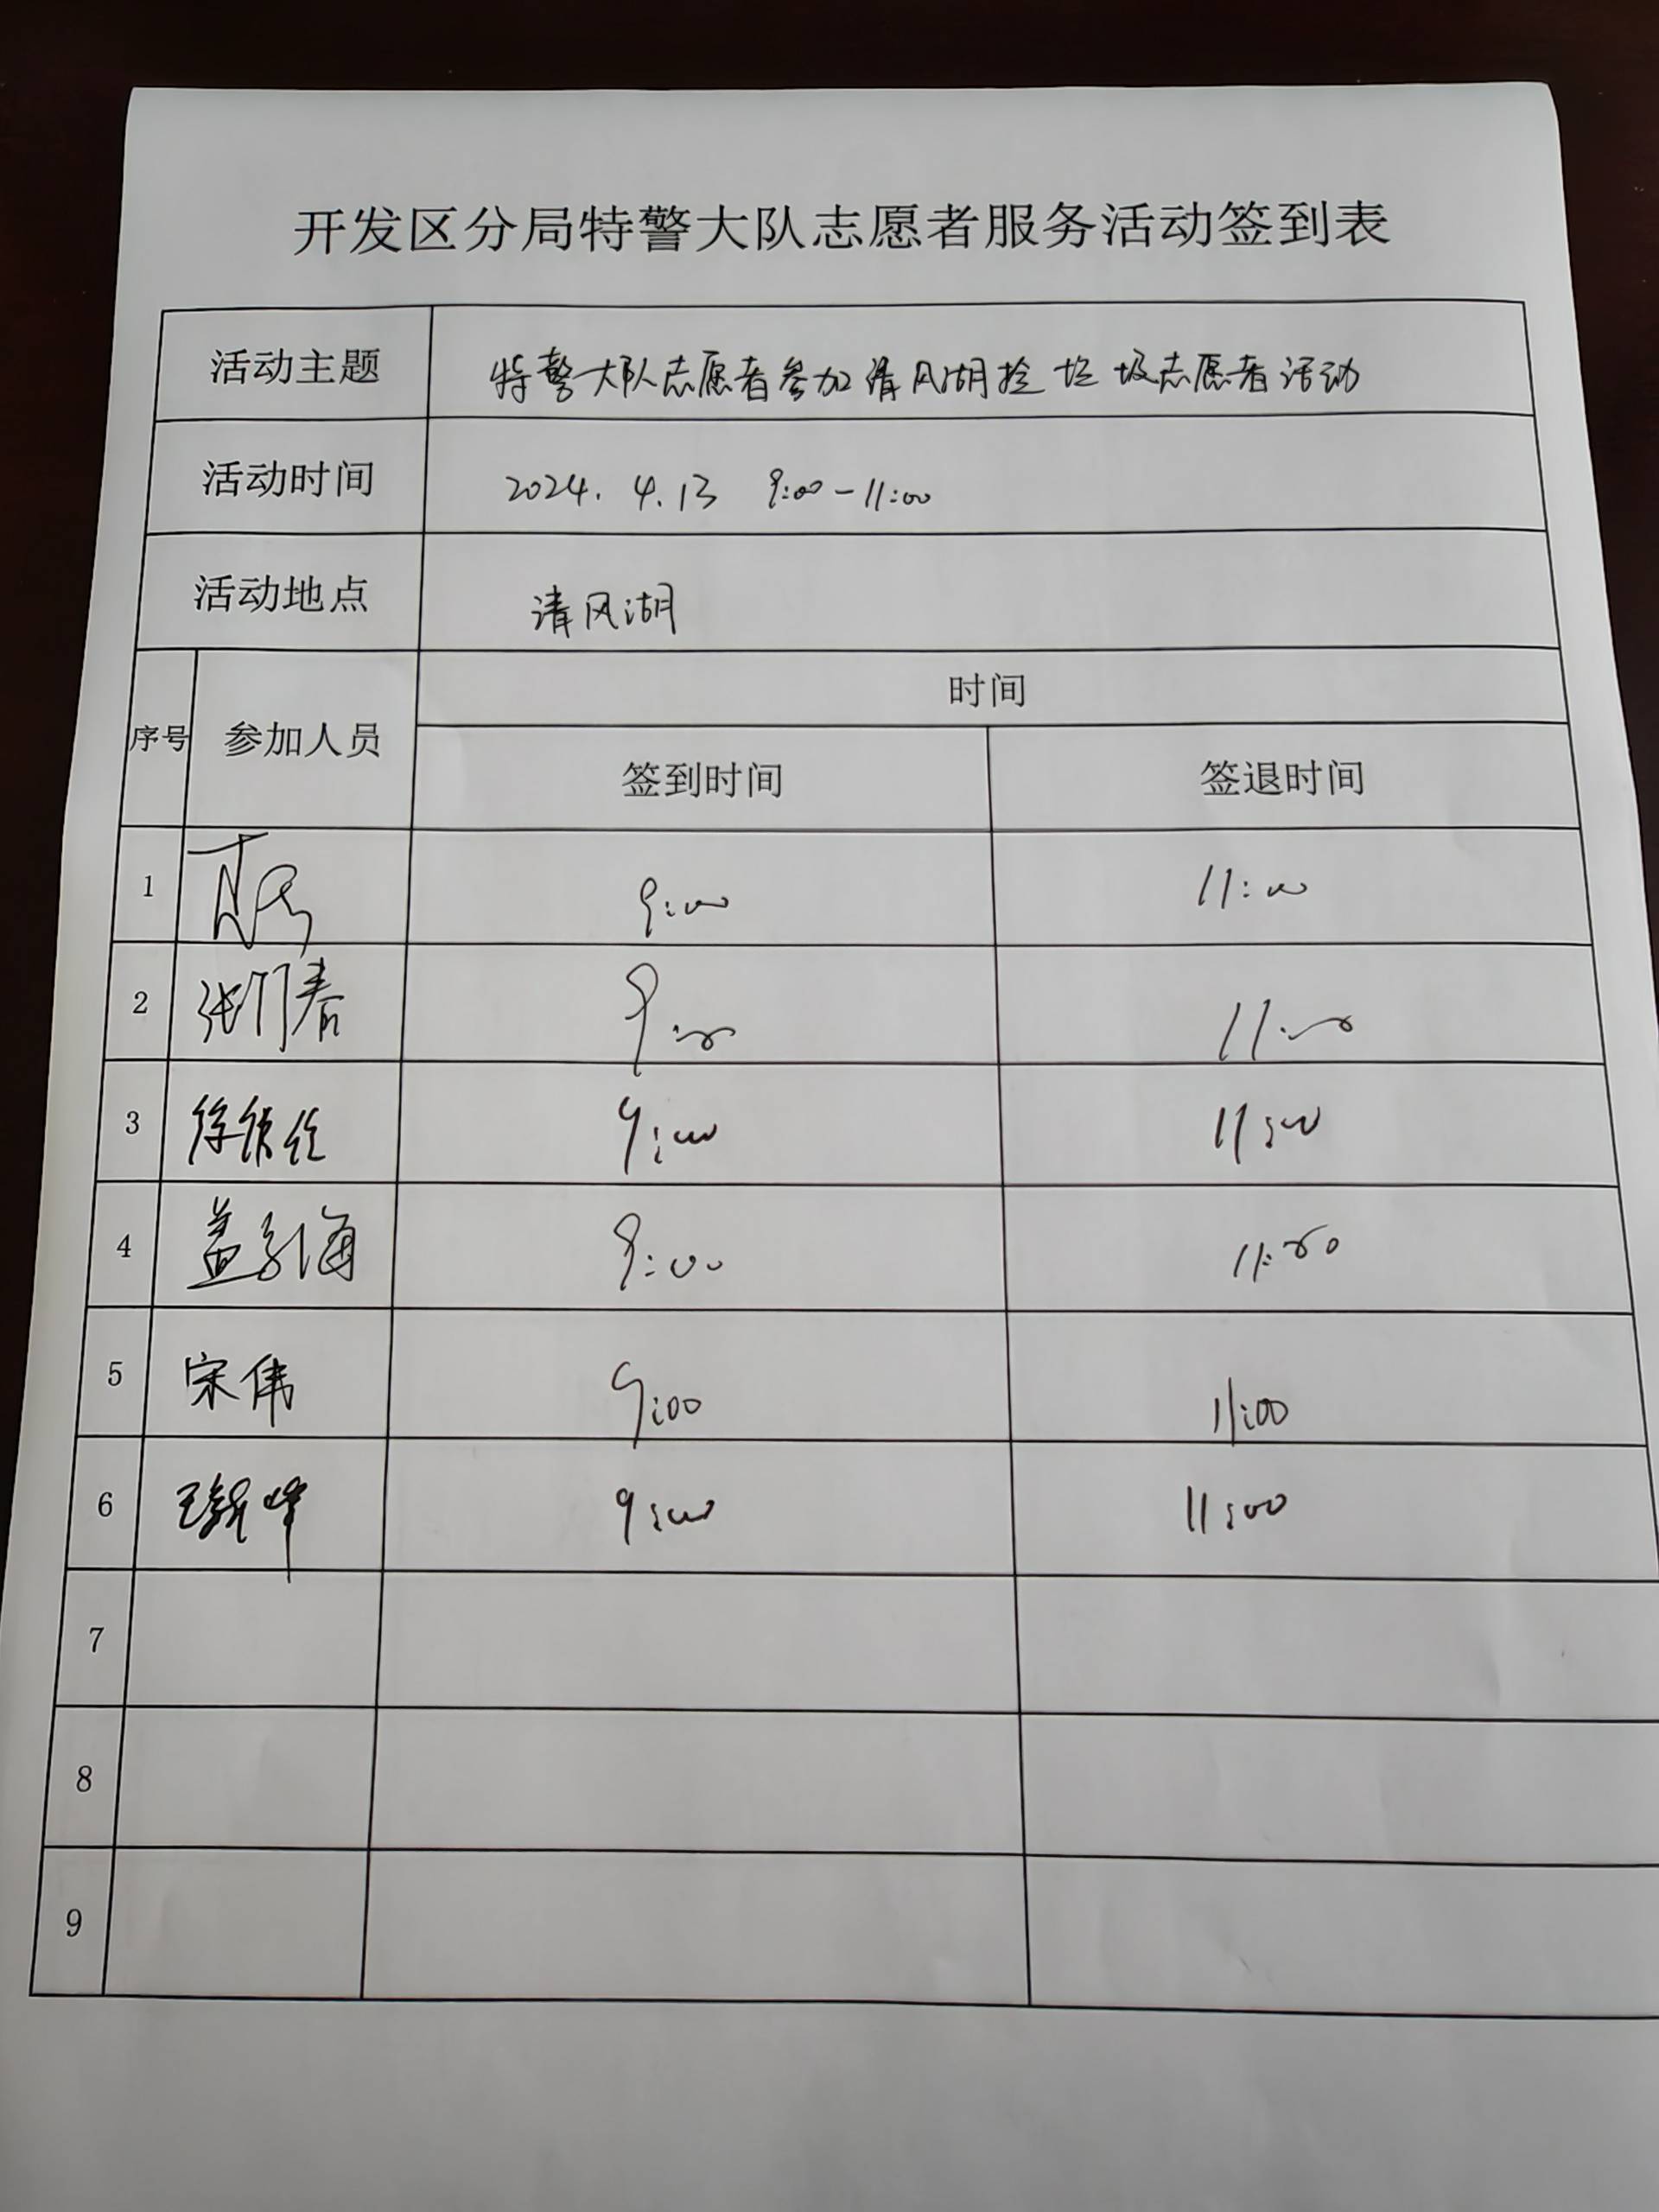 开发区分局特警大队志愿者服务活动签到表
活动主题 特警大队志愿者参加清风湖捡垃圾志愿者活动
活动时间 2024.4.13 9:00-11:00
活动地点 清风湖
序号 参加人员 时间
签到时间 签退时间
1 9:00 11:00
2 张 春 9:00 11:00
3 徐 9:00 11:00
4 盖 海 9:00 11:00
5 宋伟 9:00 11:00
6 王 峰 9:00 11:00
7
8
9